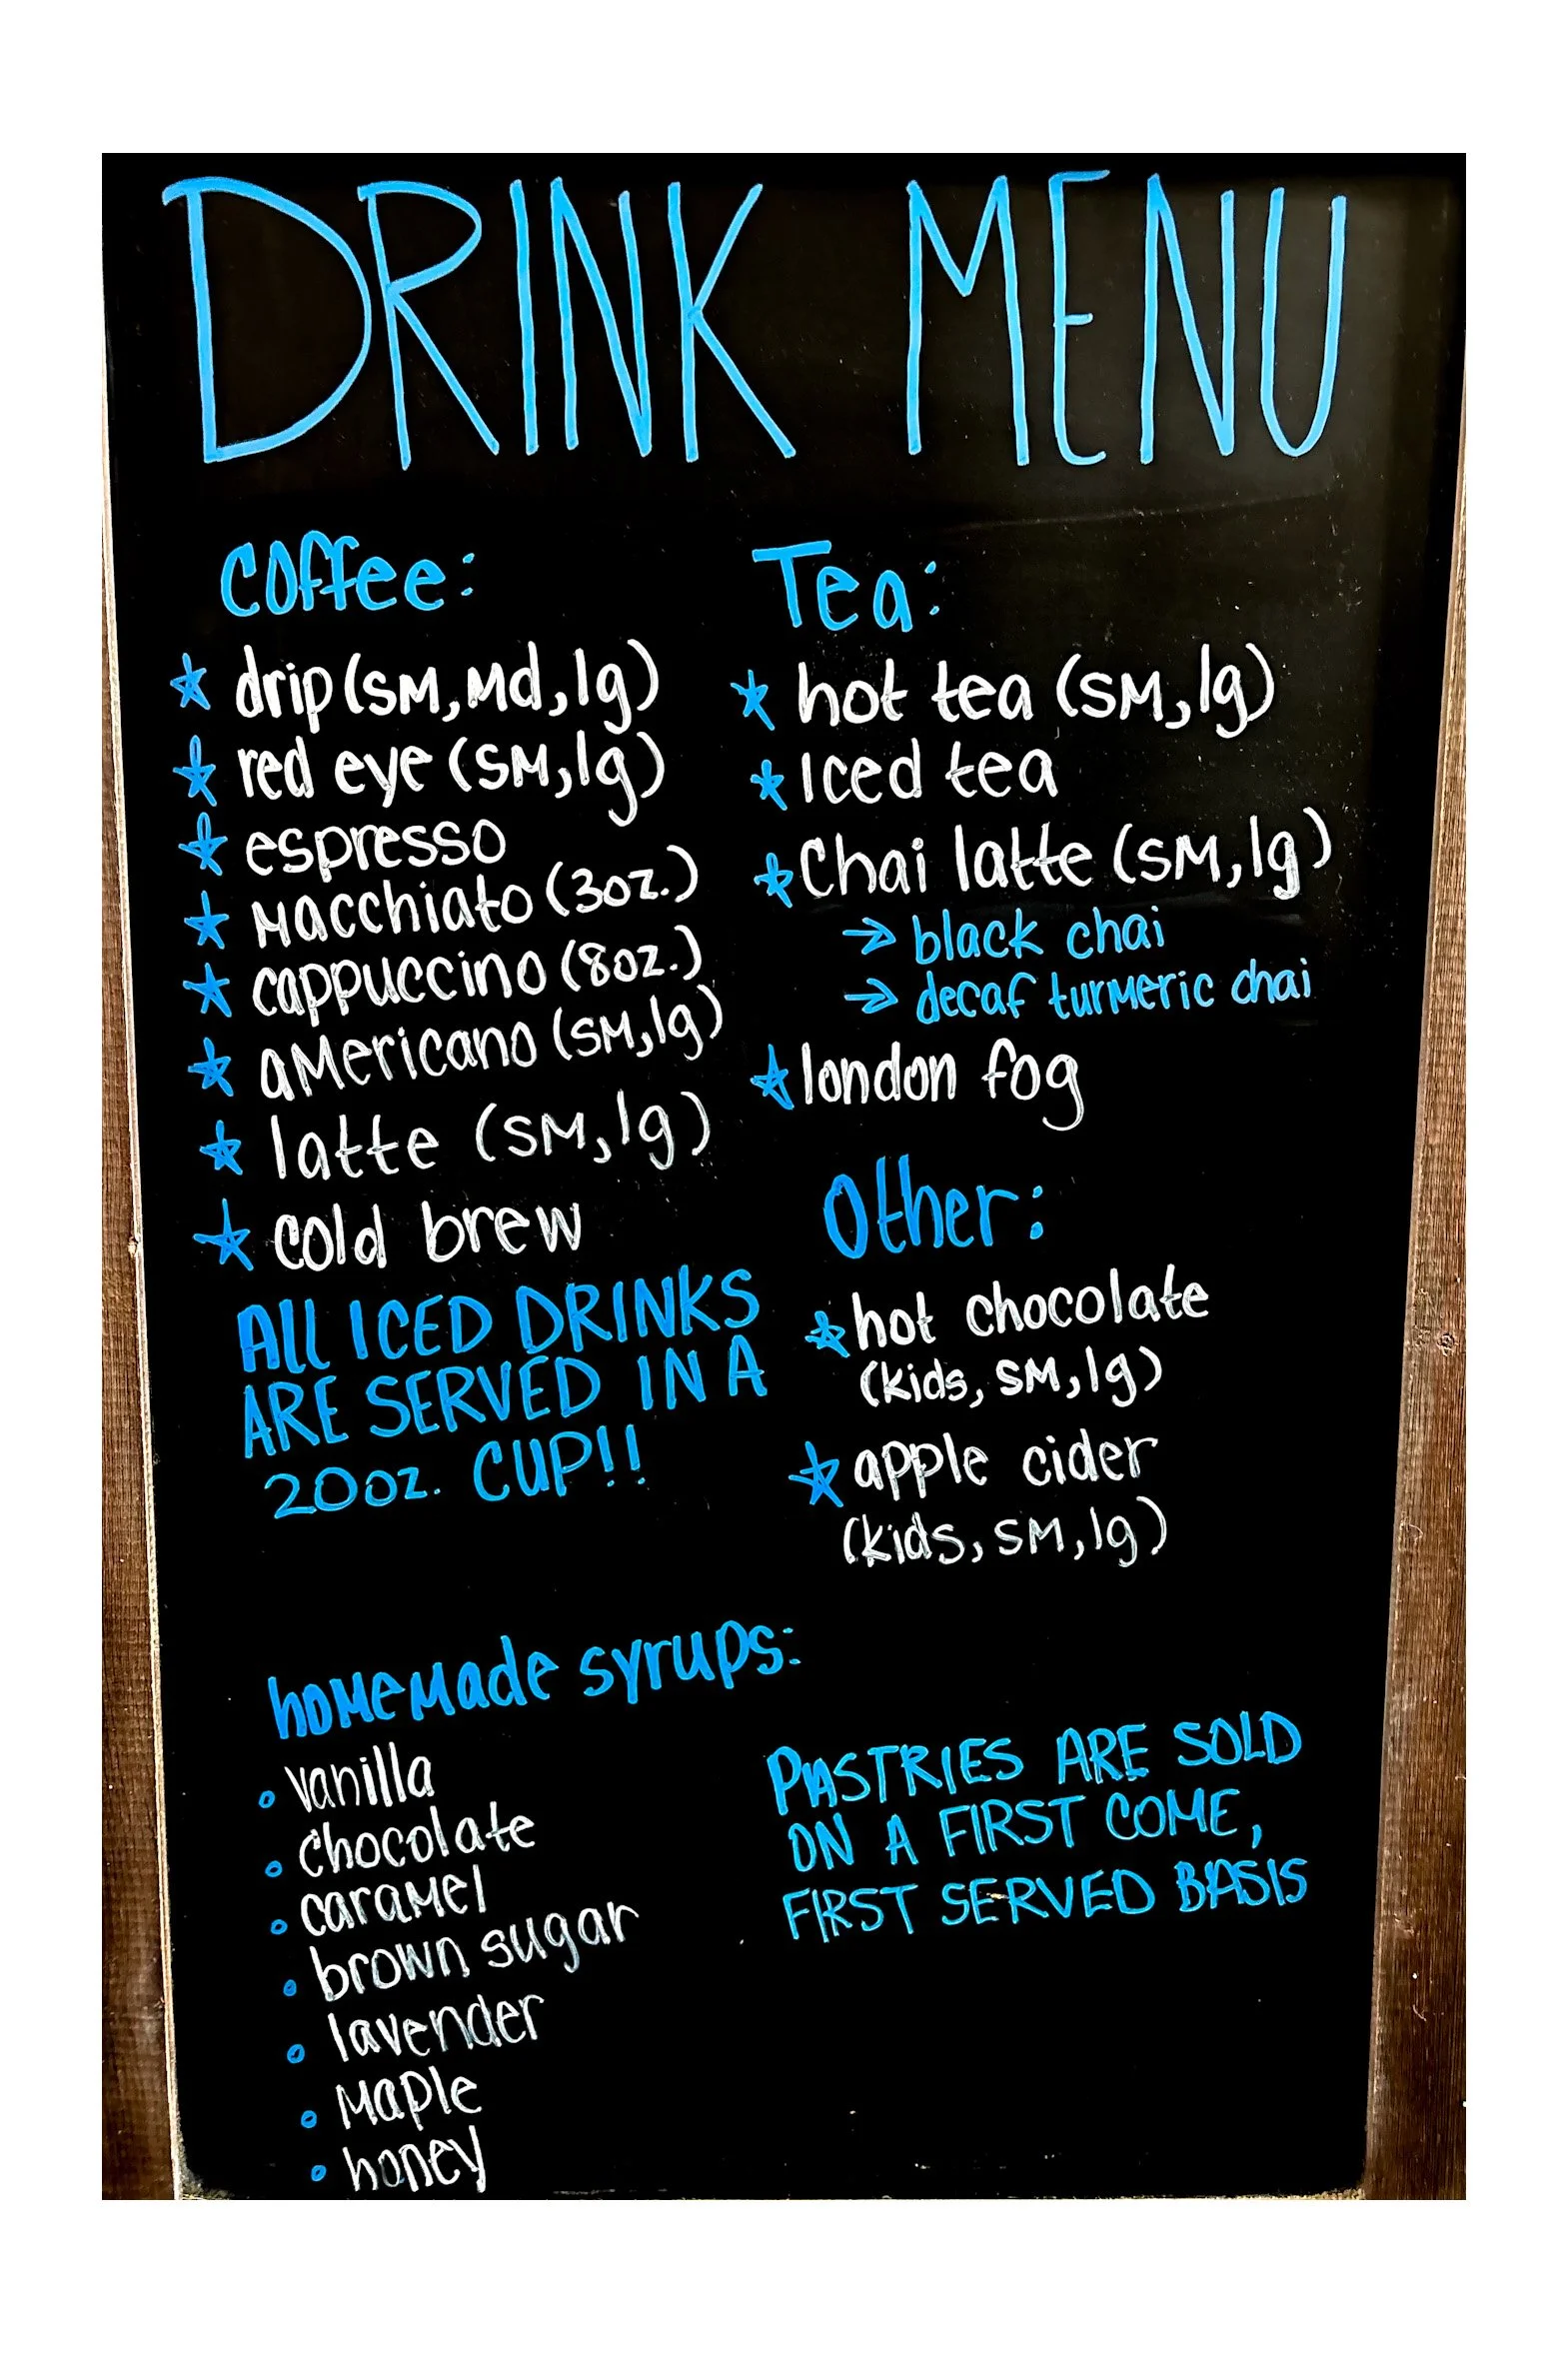 DRINK MENU
Coffee:
drip (SM, Md, lg)
red eye (SM, lg)
espresso
Macchiato (3oz.)
cappuccino (8oz.)
aMericano (SM, lg)
latte (SM, lg)
cold brew
ALL ICED DRINKS
ARE SERVED IN A
20oz. CUP!!
Tea:
hot tea (SM, lg)
Iced tea
Chai latte (SM, lg)
→ black chai
→ decaf turMeric chai
london fog
Other:
hot chocolate
(kids, SM, lg)
apple cider
(kids, SM, lg)
hoMeMade syrups:
vanilla
chocolate
caraMel
brown sugar
lavender
Maple
honey
PASTRIES ARE SOLD
ON A FIRST COME,
FIRST SERVED BASIS